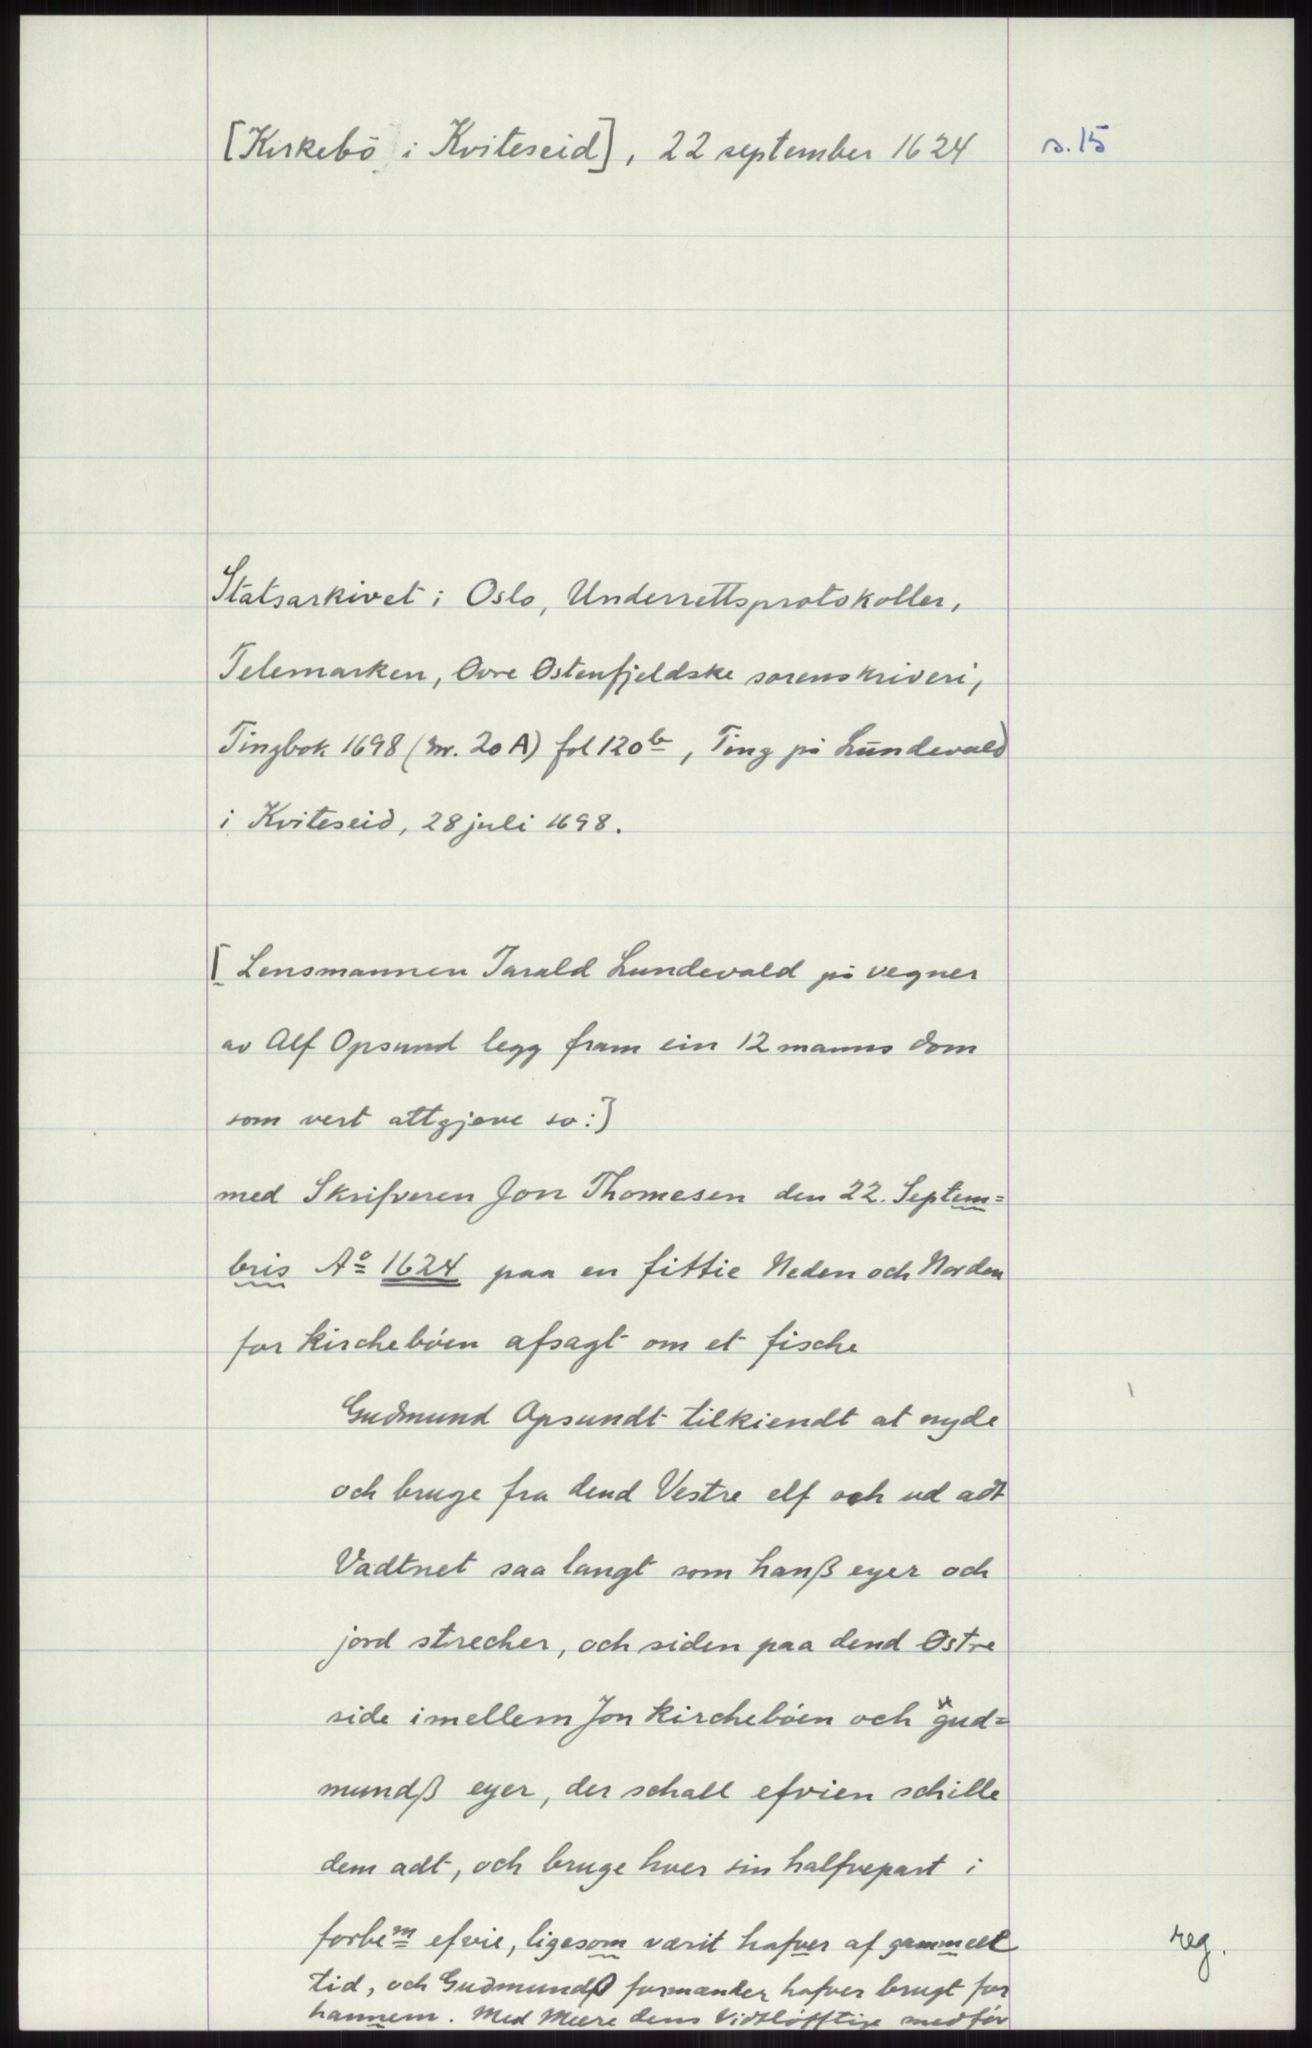 [Kirkebö i Kviteseid], 22 september 1624 s. 15
Statsarkivet i Oslo, Underrettsprotokoller,
Telemarken, Øvre Østenfjeldske sorenskriveri,
Tingbok 1698 (nr. 20 A) fol 120b, Ting på Lundevald
i Kviteseid, 28 juli 1698.
[Lensmannen Tarald Lundevald på vegner
av Alf Opsund legg fram ein 12 manns dom
som vert attgjeve so:]
med Skrifveren Jon Thomesen den 22. Septem=
bris Ao 1624 paa en fittie Neden och Norden
for Kirchebøen afsagt om et fische
Gudmund Opsundt tilkiendt at nyde
och bruge fra dend Vestre elf och ud adt
Vadtnet saa langt som hanß eyer och
jord strecher, och siden paa dend Østre
side imellem Jon Kirchebøen och gud=
mundß eyer, der schall efvien schille
dem adt, och bruge hver sin halfvepart i
forbem efvie, ligesom værit hafver af gammelt
tid, och Gudmundß formænder hafver brugt for
hannem. Med Meere dens Vidtløfftige medför
reg.